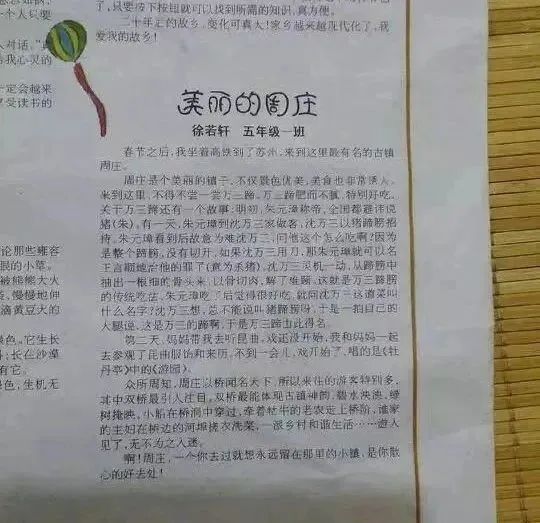 了,只要按下按钮就可以找到所需的知识,真方便。
二十年后的故乡,变化可真大!家乡越来越现代化了,我
爱我的故乡!
一个人只要
人对话。
与我心灵的
一定会越来
享受读书的
美丽的周庄
徐若轩 五年级一班
春节之后,我坐着高铁到了苏州,来到这里最有名的古镇
周庄。
周庄是个美丽的镇子,不仅景色优美,美食也非常诱人。
来到这里,不得不尝一尝万三蹄。万三蹄肥而不腻,特别好吃。
关于万三蹄还有一个故事:明初,朱元璋称帝,全国都避讳说
猪(朱)。有一天,朱元璋到沈万三家做客,沈万三以猪蹄膀招
待。朱元璋看到后故意为难沈万三,问他这个怎么吃啊?因为
是整个蹄膀,没有切开,如果沈万三用刀,那朱元璋就可以名
正言顺地治他的罪了(意为杀猪)。沈万三灵机一动,从蹄膀中
抽出一根细的骨头来,以骨切肉,解了难题,这就是万三蹄膀
的传统吃法。朱元璋吃了后觉得很好吃,就问沈万三这道菜叫
什么名字?沈万三想,总不能说叫猪蹄膀吧,于是一拍自己的
大腿说,这是万三的蹄啊,于是万三蹄由此得名。
第二天,妈妈带我去听昆曲,戏还没开始,我和妈妈一起
去参观了昆曲服饰和来历,不到一会儿,戏开始了,唱的是《牡
丹亭》中的《游园》。
众所周知,周庄以桥闻名天下,所以来往的游客特别多,
其中双桥最引人注目。双桥最能体现古镇神韵,碧水泱泱,绿
树掩映,小船在桥洞中穿过,牵着牡牛的老农走上桥阶,谁家
的主妇在桥边的河埠搓衣洗菜,一派乡村和谐生活……游人
见了,无不为之入迷。
啊!周庄,一个你去过就想永远留在那里的小镇,是你散
心的好去处!
论那些雍容
眼的小草。
被熊熊大火
袋,慢慢地伸
滴黄豆大的
绿色。它生长
料;长在沙漠
于草。
绿色,生机无